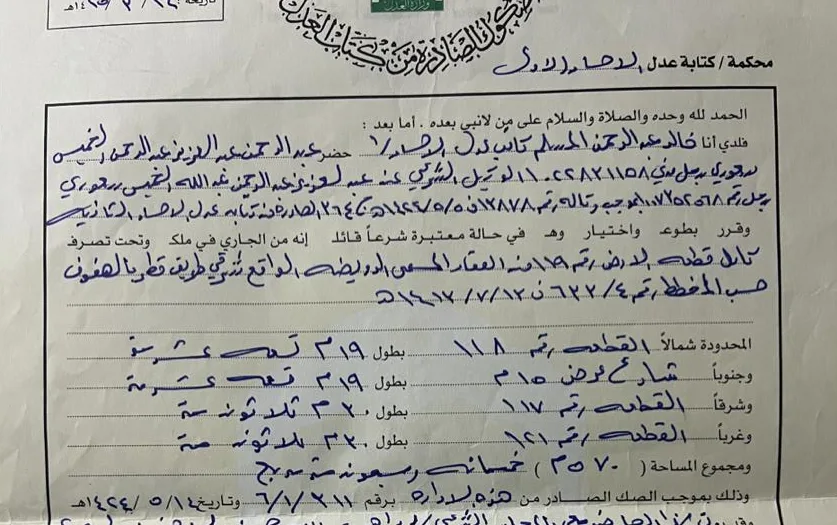 تاريخه: ١٤٢٥/٢/٢٤هـ
وزارة العدل
الصكوك الصادرة من كتاب العدل
محكمة / كتابة عدل الاحساء الأولى
الحمد لله وحده والصلاة والسلام على من لا نبي بعده . أما بعد :
فلدي أنا خالد عبدالرحمن المسلم كاتب عدل الاحساء /١ حضر عبدالرحمن عبدالعزيز عبدالرحمن الخميس
سعودي بسجل مدني الوكيل الشرعي عن عبدالعزيز عبدالرحمن عبدالله الخميس سعودي
بسجل رقم بموجب وكالة رقم ١٣٨٧٨ في ١٤٢٢/٥/٥هـ الصادرة من كتابة عدل الاحساء الثانية
وقرر بطوعـ واختيار وهـ في حالة معتبرة شرعاً قائلا إنه من الجاري في ملك وتحت تصرف
كامل قطعة الارض رقم ١١٩ من العقار المسمى الرويضه الواقع شرقي طريق قطر بالهفوف
حسب المخطط رقم ٦٣٢/٤ في ١٤١٢/٧/١٢هـ
المحدودة شمالاً القطعه رقم ١١٨ بطول ١٩م تسعه عشر متر
وجنوباً شارع عرض ١٥م بطول ١٩م تسعه عشر متر
وشرقاً القطعه رقم ١١٧ بطول ٣٠م ثلاثون متر
وغرباً القطعه رقم ١٢١ بطول ٣٠م ثلاثون متر
ومجموع المساحة ( ٥٧٠م ) خمسمائه وسبعون متر مربع
وذلك بموجب الصك الصادر من هذه الاداره برقم ٦/١/٣١١ وتاريخ ١٤٢٤/٥/١٤هـ